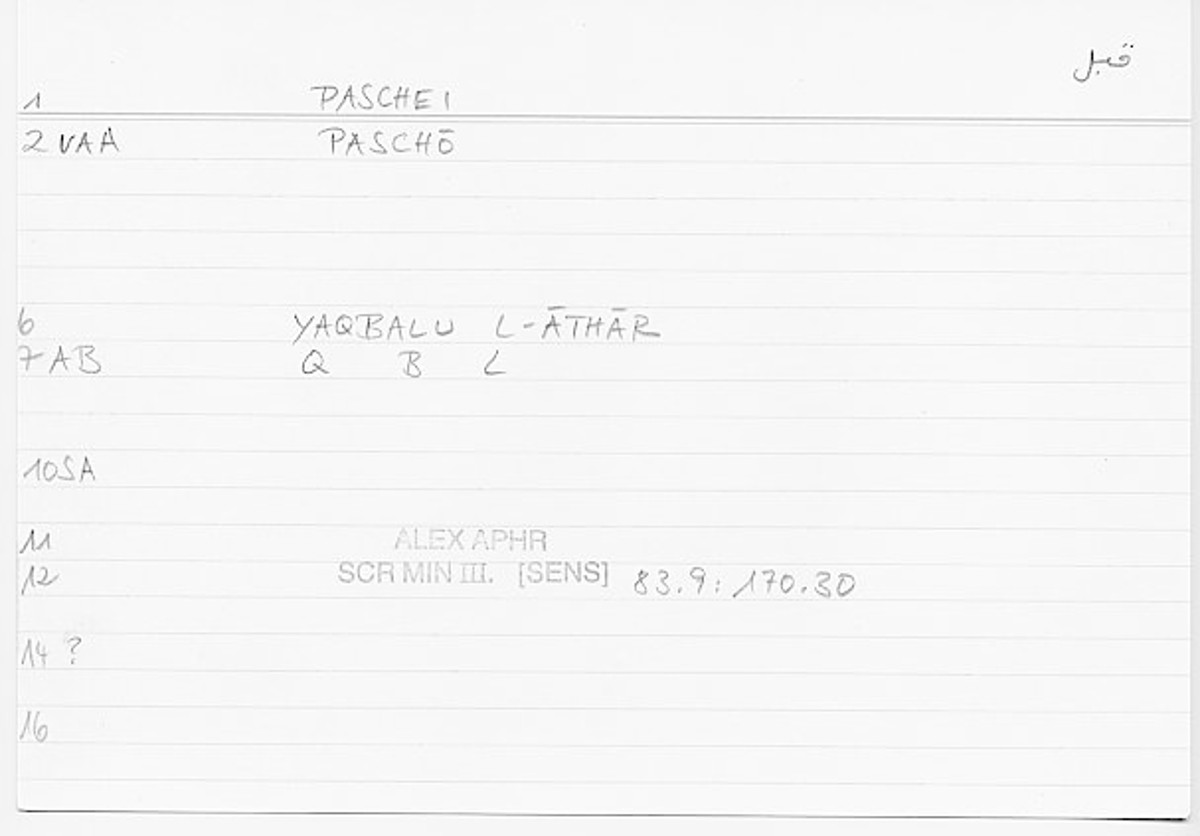 قبل
1 PASCHEI
2 VAA PASCHŌ
6 YAQBALU L-ĀTHĀR
7 AB Q B L
10SA
11 ALEX APHR
12 SCR MIN III. [SENS] 83.9: 170.30
14 ?
16